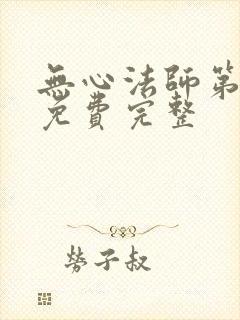 無心法師第
免費完整
勞子叔